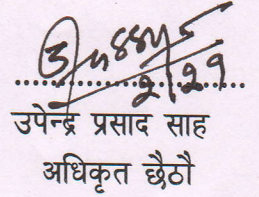 उपेन्द्र प्रसाद साह
अधिकृत छैठौ